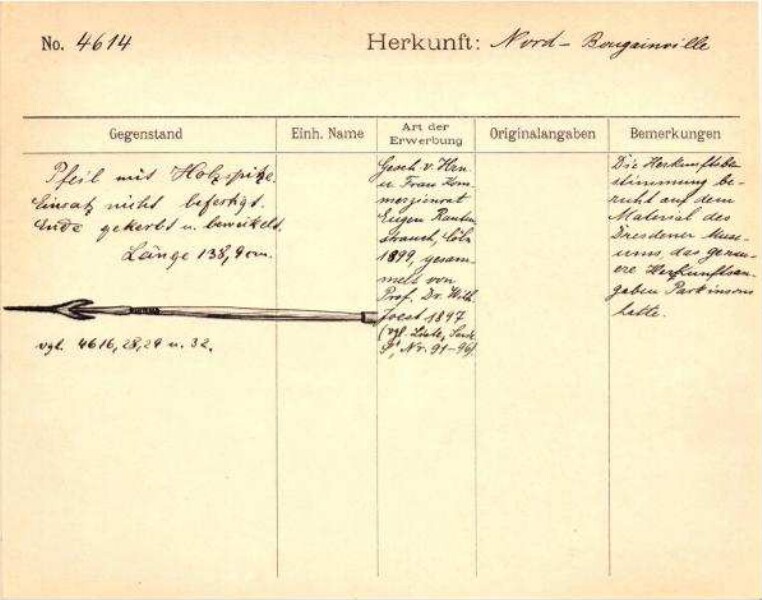 No. 4614
Herkunft: Nord- Bougainville
Gegenstand
Einh. Name
Art der
Erwerbung
Originalangaben
Bemerkungen
Pfeil mit Holzspitze.
Einsatz nicht befestigt.
Ende gekerbt u. bewickelt.
Länge 138,9 cm.
vgl. 4616, 28, 29 u. 32.
Gesch. v. Hrn
u. Frau Kom-
merzienrat
Eugen Rauten
strauch, Cöln
1899, gesam-
melt von
Prof. Dr. Wilh.
Joest 1897
(vgl. Liste,
Nr. 91-96).
Die Herkunftsbe
stimmung be-
ruht auf dem
Material des
Dresdener Muse-
ums, das genau-
ere Herkunftsan-
gaben Parkinsons
hatte.